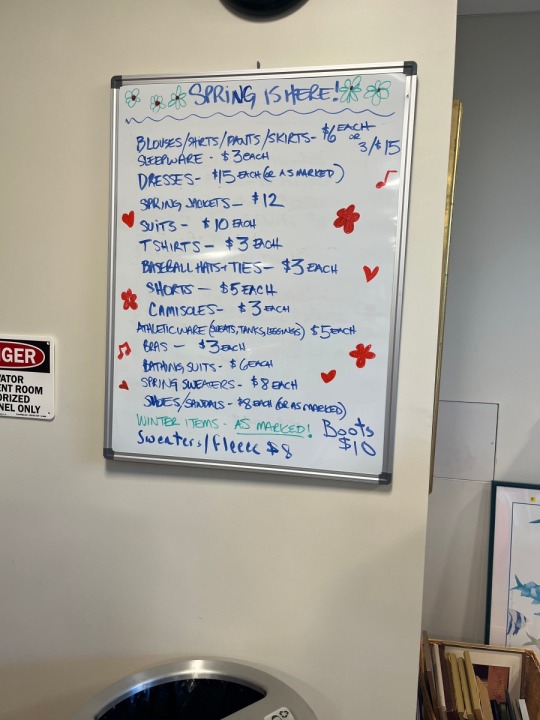 SPRING IS HERE!
BLOUSES/SHIRTS/PANTS/SKIRTS- $6 EACH OR 3/$15
SLEEPWARE - $3 EACH
DRESSES- $15 EACH (OR AS MARKED)
SPRING JACKETS- $12
SUITS- $10 EACH
T SHIRTS- $3 EACH
BASEBALL HATS + TIES- $3 EACH
SHORTS- $5 EACH
CAMISOLES- $3 EACH
ATHLETICWARE (SWEATS, TANKS, LEGGINGS) $5 EACH
BRAS- $3 EACH
BATHING SUITS- $6 EACH
SPRING SWEATERS- $8 EACH
SHOES/SANDALS- $8 EACH (OR AS MARKED)
WINTER ITEMS- AS MARKED!
Boots $10
Sweaters/fleece $8
NGER
ATOR
ENT ROOM
ORIZED
NEL ONLY